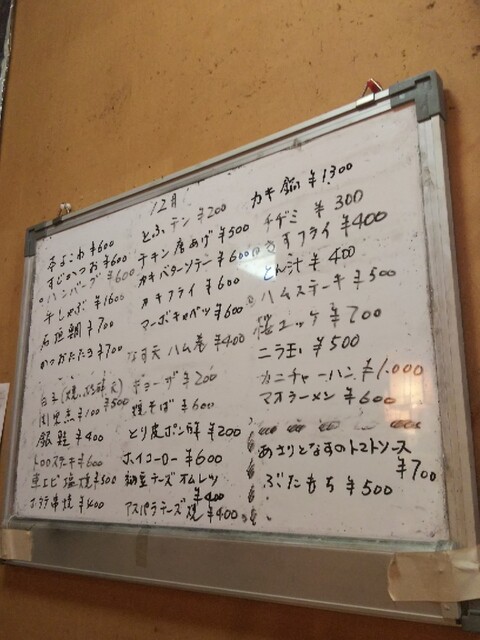 12月
よこわ ¥600
すじかつお ¥600
ハンバーグ ¥600
牛しゃぶ ¥1600
石垣鯛 ¥700
かつおたたき ¥700
白子(焼,ぶる酢,天) ¥500
¥100
銀鮭 ¥400
トロロステーキ ¥600
車エビ塩焼 ¥500
ホタテ串焼 ¥400
とふテン ¥200
チキン唐あげ ¥500
カキバターソテー ¥600
カキフライ ¥600
マーボキャベツ ¥600
なす天 ハム巻 ¥400
ギョーザ ¥200
焼そば ¥600
とり皮ポン酢 ¥200
ホイコーロー ¥600
納豆チーズオムレツ
¥400
アスパラチーズ焼 ¥400
カキ鍋 ¥1300
チヂミ ¥300
きすフライ ¥400
とん汁 ¥400
ハムステーキ ¥500
桜ユッケ ¥700
ニラ玉 ¥500
カニチャーハン ¥1.000
マオラーメン ¥600
あさりとなすのトマトソース
¥700
ぶたもち ¥500